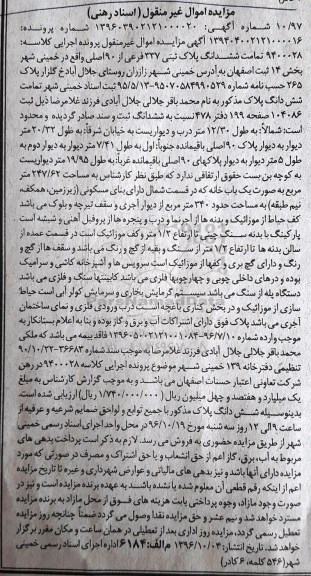 مزایده اموال غیر منقول (اسناد رهنی)
شماره آگهی: ۱۳۹۶۰۳۹۰۲۱۲۱۰۰۰۰۲۰ شماره پرونده:
۱۳۹۴۰۴۰۰۲۱۲۱۰۰۰۰۱۶ آگهی مزایده اموال غیرمنقول پرونده اجرایی کلاسه:
۹۴۰۰۰۲۸ تمامت ششدانگ پلاک ثبتی ۳۲۷ فرعی از ۹۰ اصلی واقع در خمینی شهر
بخش ۱۴ ثبت اصفهان به آدرس خمینی شهر زازران روستای جلال آباد خ گلزار پلاک
۲۶۵ حسب نامه شماره ۹۵۰۷۰۵۸۴۹۹۰۵۲۹-۹۵/۵/۱۳ شهرداری تمامت
شش دانگ پلاک مذکور به نام محمد باقر جلالی جلال آبادی فرزند غلامرضا ذیل ثبت
۱۰۴۰۸۶ صفحه ۱۹۹ دفتر ۴۷۸ نسبت به ششدانگ ثبت و سند صادر گردیده و محدود
است: شمالاً: به طول ۱۲/۳۰ متر درب و دیواریست به خیابان شرقاً: به طول ۲۰/۳۲ متر
دیوار به دیوار پلاک ۹۰ اصلی باقیمانده جنوباً: اول به طول ۷/۴۱ متر دیوار به دیوار دوم به
طول ۵ متر دیوار به دیوار پلاکهای ۹۰ اصلی باقیمانده غرباً: به طول ۱۹/۹۵ متر دیواریست
به کوچه بن بست حقوق ارتفاقی ندارد که طبق نظر کارشناس به مساحت ۲۴۷/۶۲ متر
مربع به صورت یک باب خانه که در قسمت شمال دارای بنای مسکونی (زیرزمین، همکف،
نیم طبقه) به مساحت حدود ۳۴۰ متر مربع از دیوار آجری و سقف تیرچه و بلوک می باشد
کف حیاط از موزائیک و بدنه ها از آجرنما و درب و پنجره ها از پروفیل آهنی و شیشه است
پارکینگ با بدنه سنگ چینی تا ارتفاع ۱/۲ متر و کف موزائیک است در قسمت عمده از
سالن بدنه ها تا ارتفاع ۷۲ متر از سنگ و بقیه از گچ و رنگ می باشد و سقف ها از گچ و
رنگ و دارای گچ بری و کفها از موزائیک است سرویس ها و آشپزخانه کاشی و سرامیک
بوده و درهای داخلی چوبی و چهارچوبها فلزی می باشد کابینتها سنگ و فلزی می باشد
دستگاه پله از سنگ می باشد سیستم گرمایش بخاری و سرمایش کولر آبی است حیاط
سازی از موزائیک و در بخش کناری باغچه است درب ورودی فلزی و نمای ساختمان
آجری می باشد پلاک فوق دارای اشتراکات آب و برق و گاز بوده و بنا به اعلام بستانکار به
موجب وارده شماره ۱۳۹۶۰۵۰۰۲۱۲۱۰۰۱۰۸۳-۹۶/۷/۱۰ فاقد بیمه می باشد که ملکی
محمد باقر جلالی جلال آبادی فرزند غلامرضا به موجب سند شماره ۳۶۶۸۳-۹۰/۱۰/۲۲
تنظیمی دفترخانه ۱۳۹ خمینی شهر موضوع پرونده اجرایی کلاسه ۹۴۰۰۰۲۸ در رهن
شرکت تعاونی اعتبار حسنات اصفهان می باشد و به موجب گزارش کارشناس به مبلغ
یک میلیارد و هفتصد و چهل میلیون ریال (۱/۷۴۰/۰۰۰/۰۰۰ ریال) ارزیابی شده است.
بدینوسیله شش دانگ پلاک مذکور با جمیع توابع و لواحق ضمایم شرعیه و عرفیه از
ساعت ۹ الی ۱۲ روز سه شنبه مورخ ۹۶/۱۰/۱۹ در محل واحد اجرای اسناد رسمی خمینی
شهر از طریق مزایده حضوری به فروش می رسد. لازم به ذکر است پرداخت بدهی های
مربوط به آب، برق، گاز اعم از حق انشعاب و یا حق اشتراک و مصرف در صورتی که مورد
مزایده دارای آنها باشد و نیز بدهی های مالیاتی و عوارض شهرداری و غیره تا تاریخ مزایده
اعم از اینکه رقم قطعی آن معلوم شده یا نشده باشد به عهده برنده مزایده است و نیز در
صورت وجود مازاد، وجوه پرداختی بابت هزینه های فوق از محل مازاد به برنده مزایده
مسترد خواهد شد و نیم عشر و حق مزایده نقدا وصول می گردد ضمناً چنانچه روز مزایده
تعطیل رسمی گردد، مزایده روز اداری بعد از تعطیلی در همان ساعت و مکان مقرر برگزار
خواهد شد. تاریخ انتشار: ۱۳۹۶/۱۰/۰۳ م الف: ۶۱۸۴ اداره اجرای اسناد رسمی خمینی
شهر (۵۴۶ کلمه، ۶ کادر)